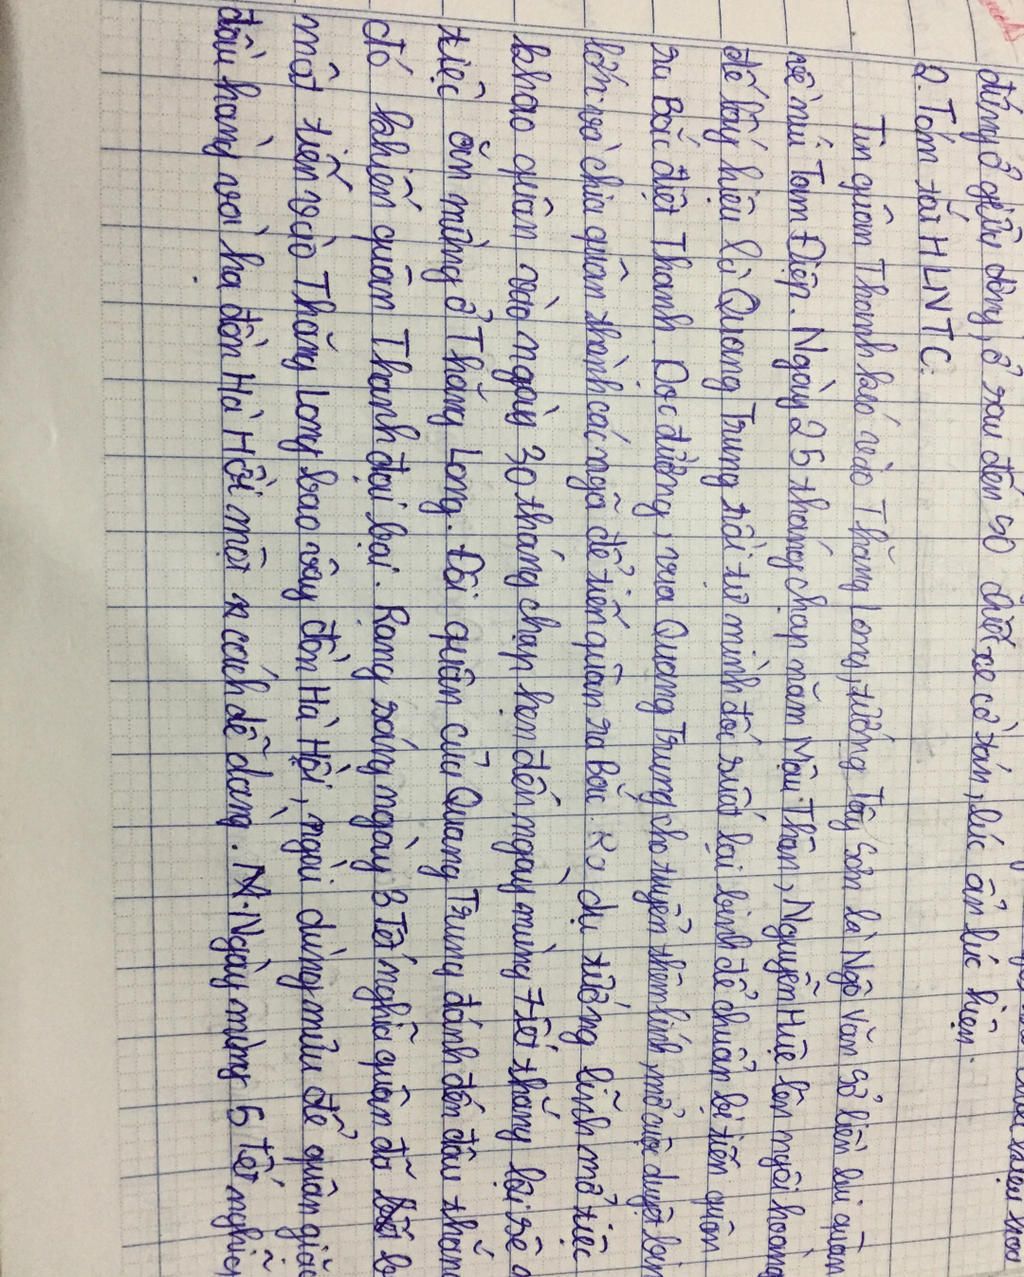 đứng ở giữa đồng, ở sau đến 50 chiếc xe cờ tán, lúc ẩn lúc hiện.
2. Tóm tắt HLNTC:
Tin quân Thanh kéo vào Thăng Long, tướng Tây Sơn là Ngô Văn Sở liền lui quân
về núi Tam Điệp. Ngày 25 tháng chạp năm Mậu Thân, Nguyễn Huệ lên ngôi hoàng
đế lấy hiệu là Quang Trung rồi tự mình đốc suất lại binh để chuẩn bị tiến quân
ra Bắc diệt Thanh. Dọc đường, vua Quang Trung cho tuyển thêm lính, mở cuộc duyệt bin
lớn và chia quân thành các ngã để tiến quân ra Bắc. Ra chỉ tướng lĩnh mở tiệc
khao quân vào ngày 30 tháng chạp hẹn đến ngày mùng 7 tết thắng lại sẽ
tiệc ăn mừng ở Thăng Long. Đội quân của Quang Trung đánh đến đâu thắn
đó khiến quân Thanh đại bại. Rạng sáng ngày 3 Tết nghĩa quân đã b
một tiến vào Thăng Long bao vây đồn Hà Hồi, ngài dùng mưu để quân giặc
đầu hàng và hạ đồn Hà Hồi một x cách dễ dàng. Ngày mùng 5 tết nghĩa